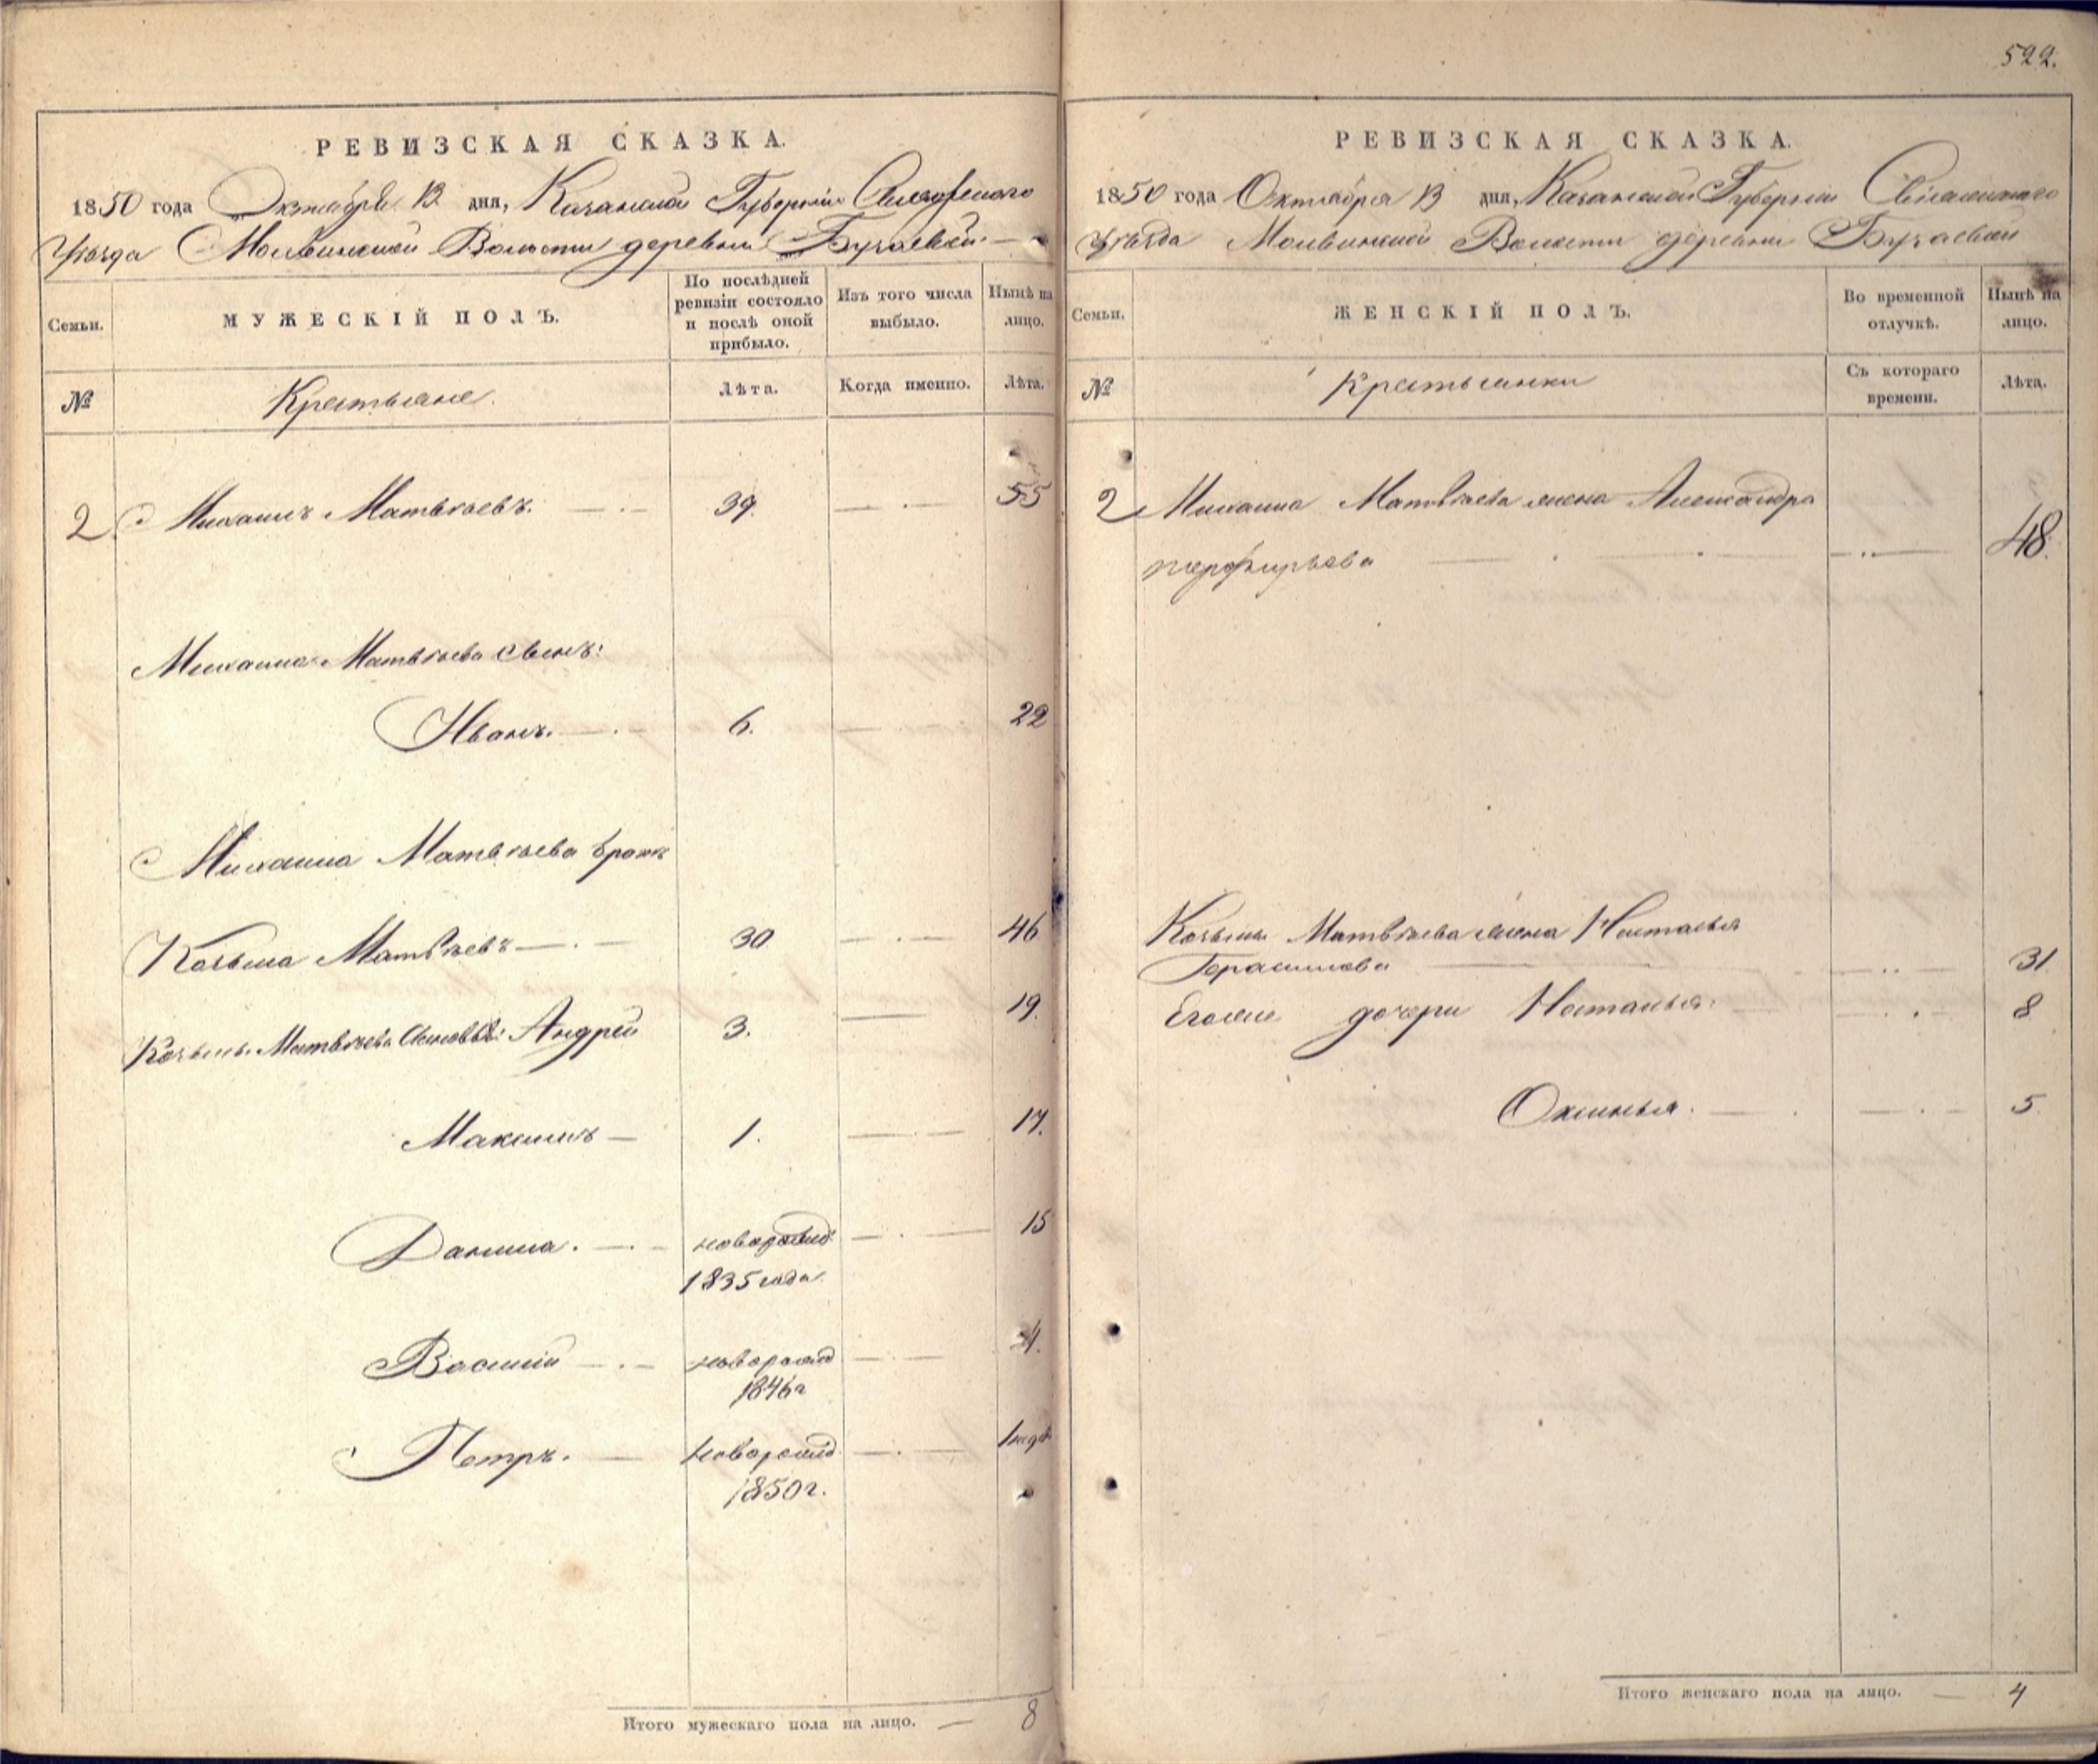 522.
РЕВИЗСКАЯ СКАЗКА.
1850 года Октября 13 дня, Казанской Губернiи Свiяжскаго
Уѣзда Молвинской Волости деревни Бузаевой
Семьи.
МУЖЕСКIЙ ПОЛЪ.
По послѣдней ревизiи состояло и послѣ оной прибыло.
Изъ того числа выбыло.
Нынѣ на лицо.
№
Крестьяне.
Лѣта.
Когда именно.
Лѣта.
2 Михаилъ Матвѣевъ. 39. 55
Михаила Матвѣева сынъ:
Иванъ. 6. 22
Михаила Матвѣева братъ
Козьма Матвѣевъ 30 46
Козьмы Матвѣева сыновья: Андрей 3. 19.
Максимъ 1. 17.
Данила. новорожд 15
1835 года
Василiй новорожд 4.
1846 г
Петръ. новорожд 1 нед
1850 г.
Итого мужескаго пола на лицо. 8
РЕВИЗСКАЯ СКАЗКА.
1850 года Октября 13 дня, Казанской Губернiи Свiяжскаго
Уѣзда Молвинской Волости деревни Бузаевой
Семьи.
ЖЕНСКIЙ ПОЛЪ.
Во временной отлучкѣ.
Нынѣ на лицо.
№
Крестьянки
Съ котораго времени.
Лѣта.
2 Михаила Матвѣева жена Александра
перфирьева 48.
Козьмы Матвѣева жена Наталья
Герасимова 31
Его же дочери Наталья: 8
Оксинья. 5.
Итого женскаго пола на лицо. 4